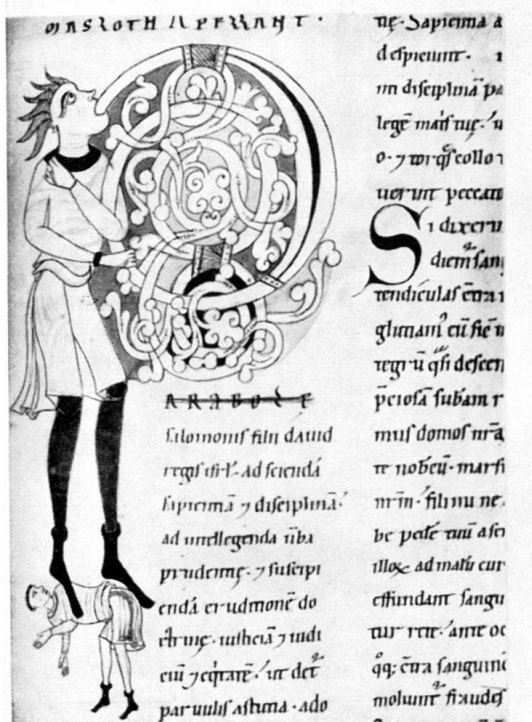 MASLOTH APPELLANT ·
PARABOLE
salomonis filii david
regis isrl'. ad sciendā
sapientiā ⁊ disciplinā.
ad intellegenda ūba
prudentię. ⁊ suscipi
endā eruditionē do
ctrinę. iusticiā ⁊ iudi
ciū ⁊ eq̄tatē. ut det'
parvulis astutia. ado
tię. Sapientia
despiciunt.
mi disciplinā
legē matris tuę.
o. ⁊ torq's collo
uerint
Si
diem
tendiculas c̄tra
glutiam' eū
tegrū q'si
p̄ciosā subam
mus domos nr̄a
te nobcū. marsu
nr̄m. fili mi ne
be pedē tuū
illoꝝ ad malū cur
effundant
tur rete. ante
qq; c̄tra
moliunt' fraudes